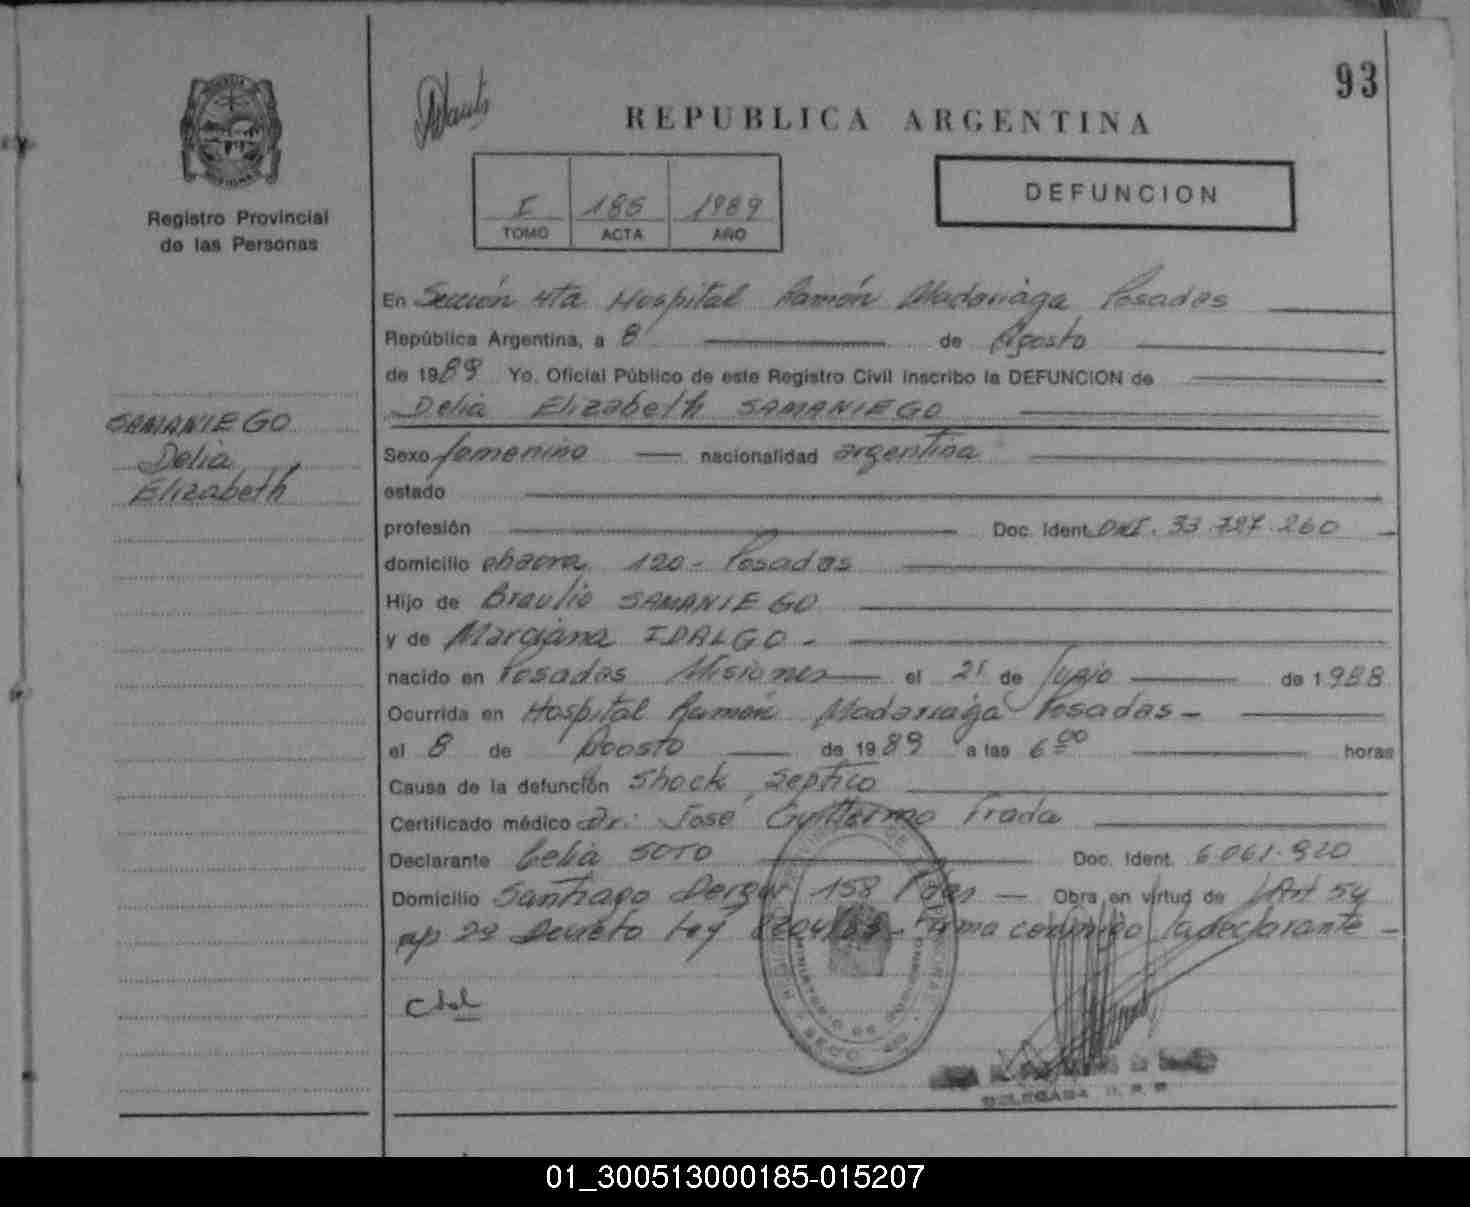 93
REPUBLICA ARGENTINA
Registro Provincial
de las Personas
I 185 1989
TOMO ACTA AÑO
DEFUNCION
En Sección 4ta Hospital Ramón Madariaga Posadas
República Argentina, a 8 de Agosto
de 1989 Yo, Oficial Público de este Registro Civil inscribo la DEFUNCION de
Delia Elizabeth SAMANIEGO
SAMANIEGO
Delia
Elizabeth
Sexo femenino nacionalidad argentina
estado
profesión Doc. Ident. DNI. 33.727.260
domicilio 120 - Posadas
Hijo de Braulio SAMANIEGO
y de Marciana IDALGO -
nacido en Posadas Misiones el 21 de de 1.988
Ocurrida en Hospital Ramón Madariaga Posadas -
el 8 de Agosto de 1989 a las 6 00 horas
Causa de la defunción Shock Septico
Certificado médico Dr: José Guillermo Frada
Declarante Celia SOTO Doc. Ident. 6.061.920
Domicilio Santiago 158 Pdas Obra en virtud de Art 54
2º Decreto Ley Firma conmigo la declarante -
MINISTERIO DE GOBIERNO
DELEGADA
01_300513000185-015207